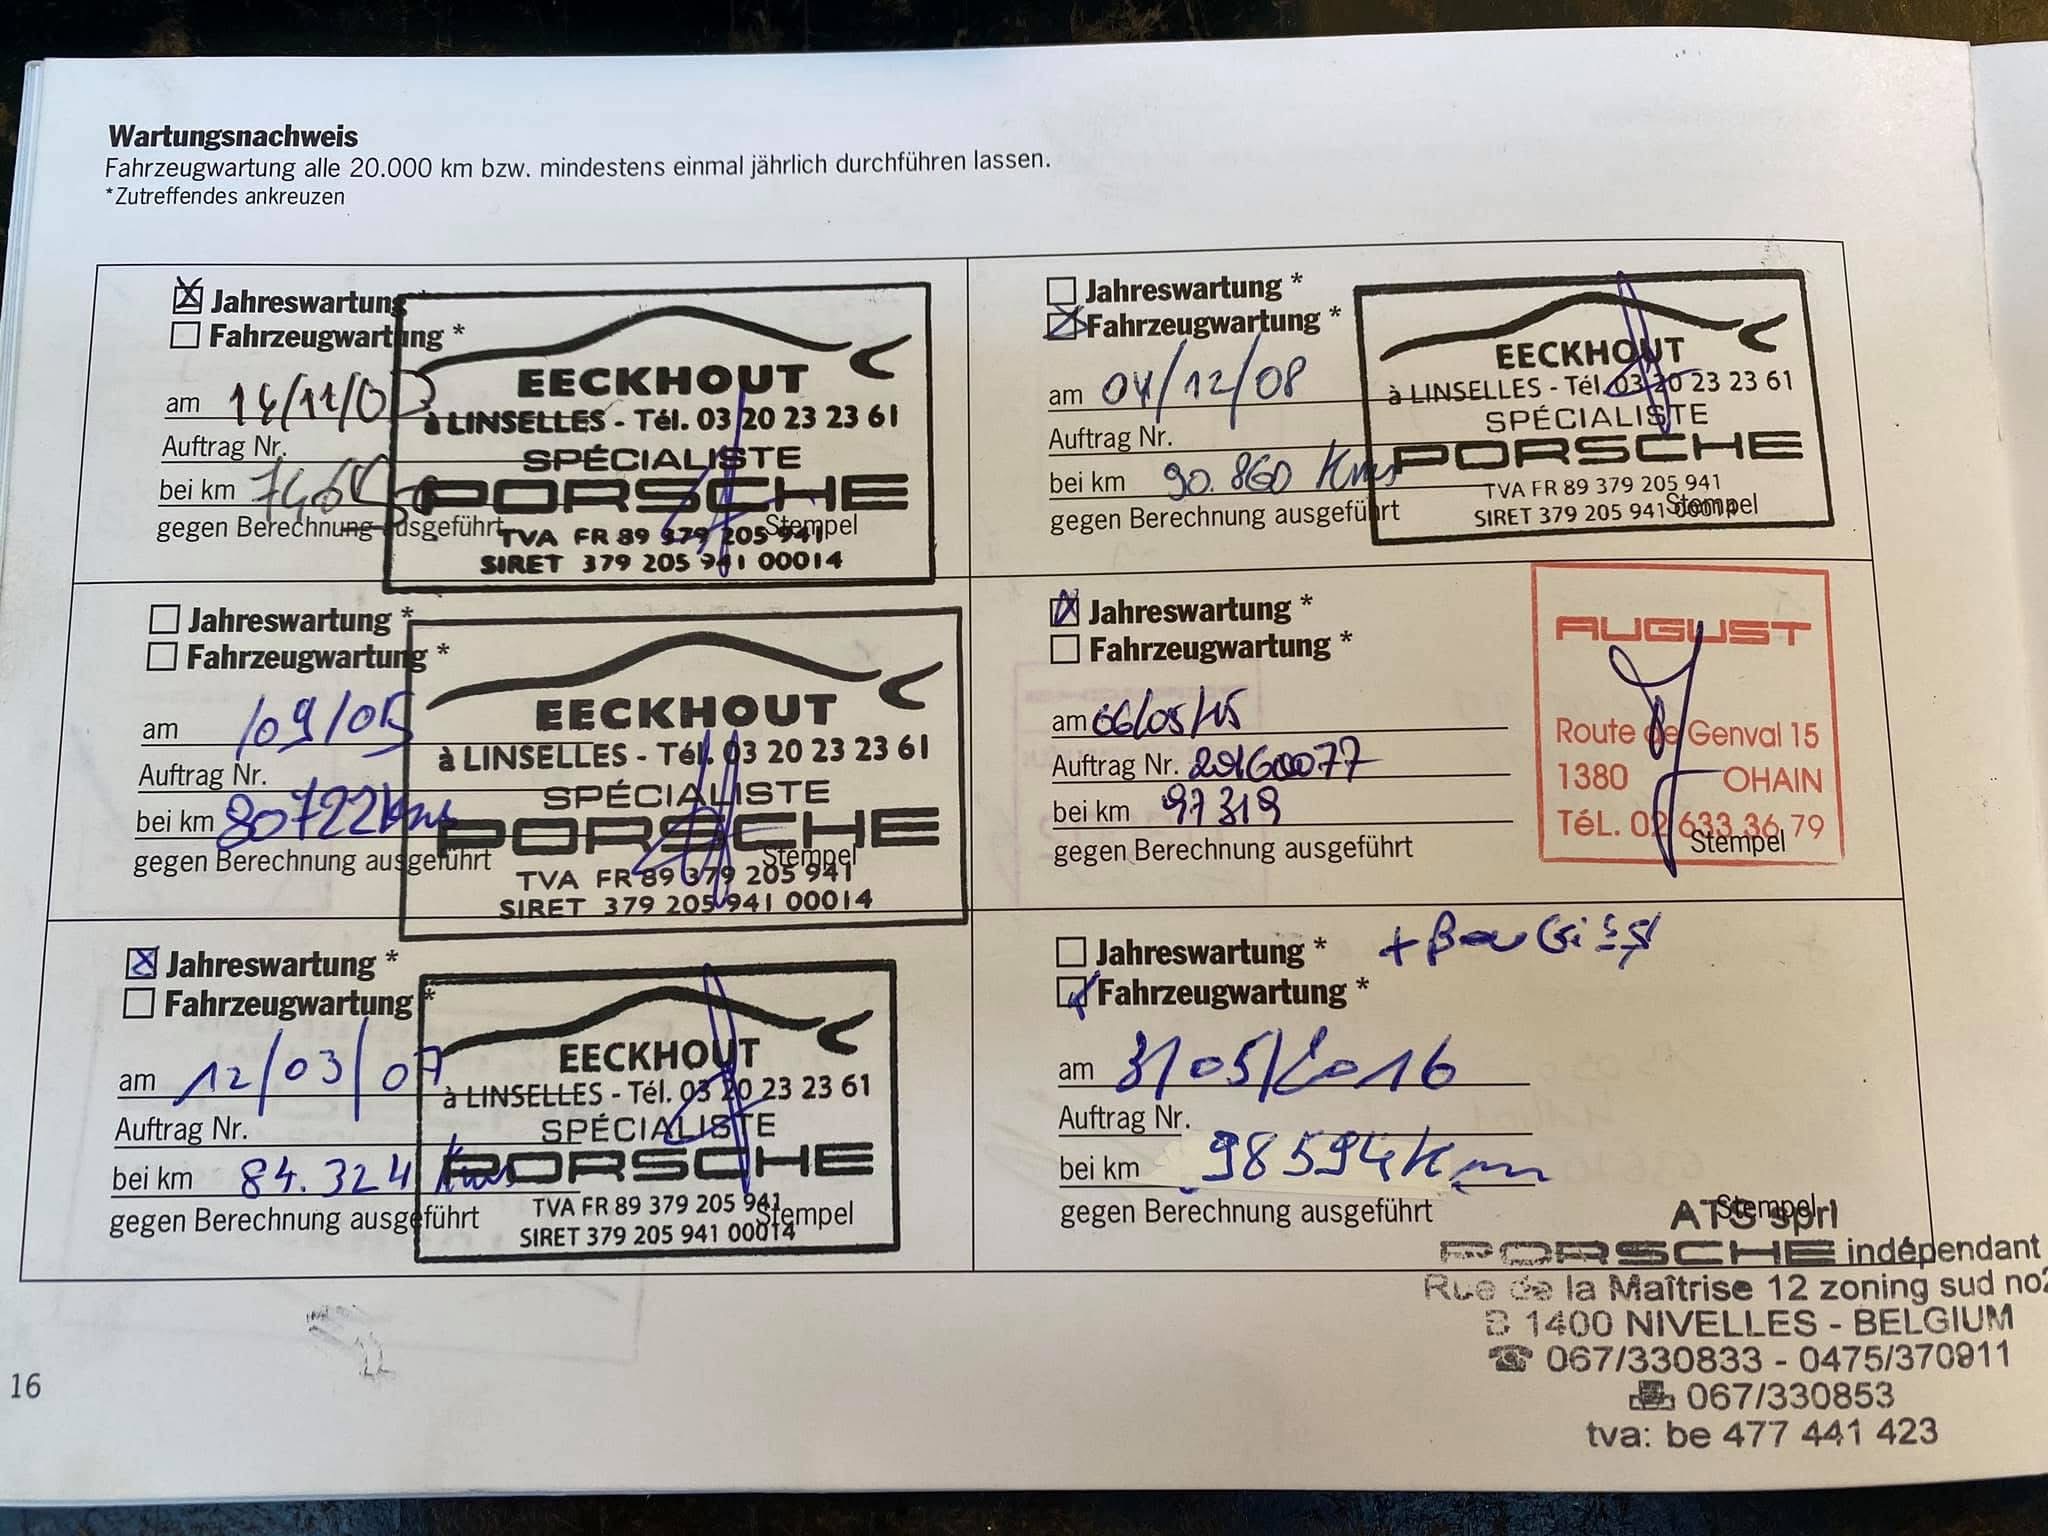 Wartungsnachweis
Fahrzeugwartung alle 20.000 km bzw. mindestens einmal jährlich durchführen lassen.
*Zutreffendes ankreuzen
Jahreswartung *
Fahrzeugwartung *
am
Auftrag Nr.
bei km
gegen Berechnung ausgeführt
Stempel
EECKHOUT
à LINSELLES - Tél. 03 20 23 23 61
SPÉCIALISTE
PORSCHE
TVA FR 89 379 205 941
SIRET 379 205 941 00014
Jahreswartung *
Fahrzeugwartung *
am /09/05
Auftrag Nr.
bei km 80722 kms
gegen Berechnung ausgeführt
Stempel
EECKHOUT
à LINSELLES - Tél. 03 20 23 23 61
SPÉCIALISTE
PORSCHE
TVA FR 89 379 205 941
SIRET 379 205 941 00014
Jahreswartung *
Fahrzeugwartung *
am 12/03/07
Auftrag Nr.
bei km 84.324 kms
gegen Berechnung ausgeführt
Stempel
EECKHOUT
à LINSELLES - Tél. 03 20 23 23 61
SPÉCIALISTE
PORSCHE
TVA FR 89 379 205 941
SIRET 379 205 941 00014
Jahreswartung *
Fahrzeugwartung *
am 04/12/08
Auftrag Nr.
bei km 90.860 Kms
gegen Berechnung ausgeführt
Stempel
EECKHOUT
à LINSELLES - Tél. 03 20 23 23 61
SPÉCIALISTE
PORSCHE
TVA FR 89 379 205 941
SIRET 379 205 941 00014
Jahreswartung *
Fahrzeugwartung *
am 06/05/15
Auftrag Nr.
bei km 97319
gegen Berechnung ausgeführt
Stempel
AUGUST
Route de Genval 15
1380 OHAIN
TéL. 02 633 36 79
Jahreswartung *
Fahrzeugwartung *
am 31/05/2016
Auftrag Nr.
bei km 98594 Km
gegen Berechnung ausgeführt
Stempel
ATS sprl
PORSCHE indépendant
Rue de la Maîtrise 12 zoning sud no2
B 1400 NIVELLES - BELGIUM
☎ 067/330833 - 0475/370911
067/330853
tva: be 477 441 423
16